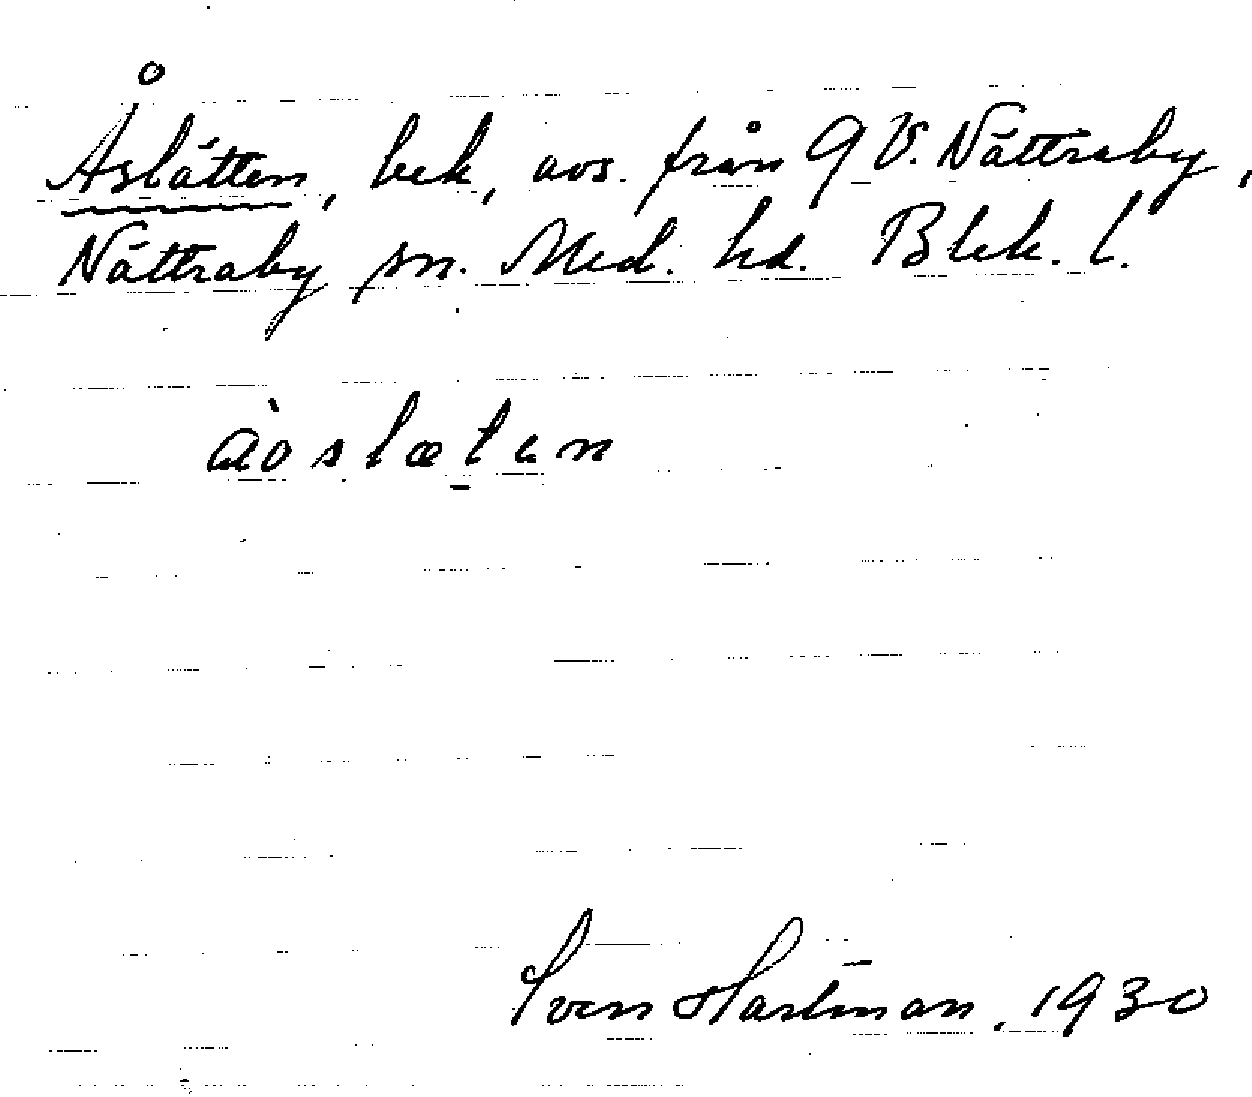 Åslätten, bek, avs. från 9 V. Nättraby,
Nättraby sn. Med. hd. Blek. l.
àoslæten
Sven Hartman, 1930